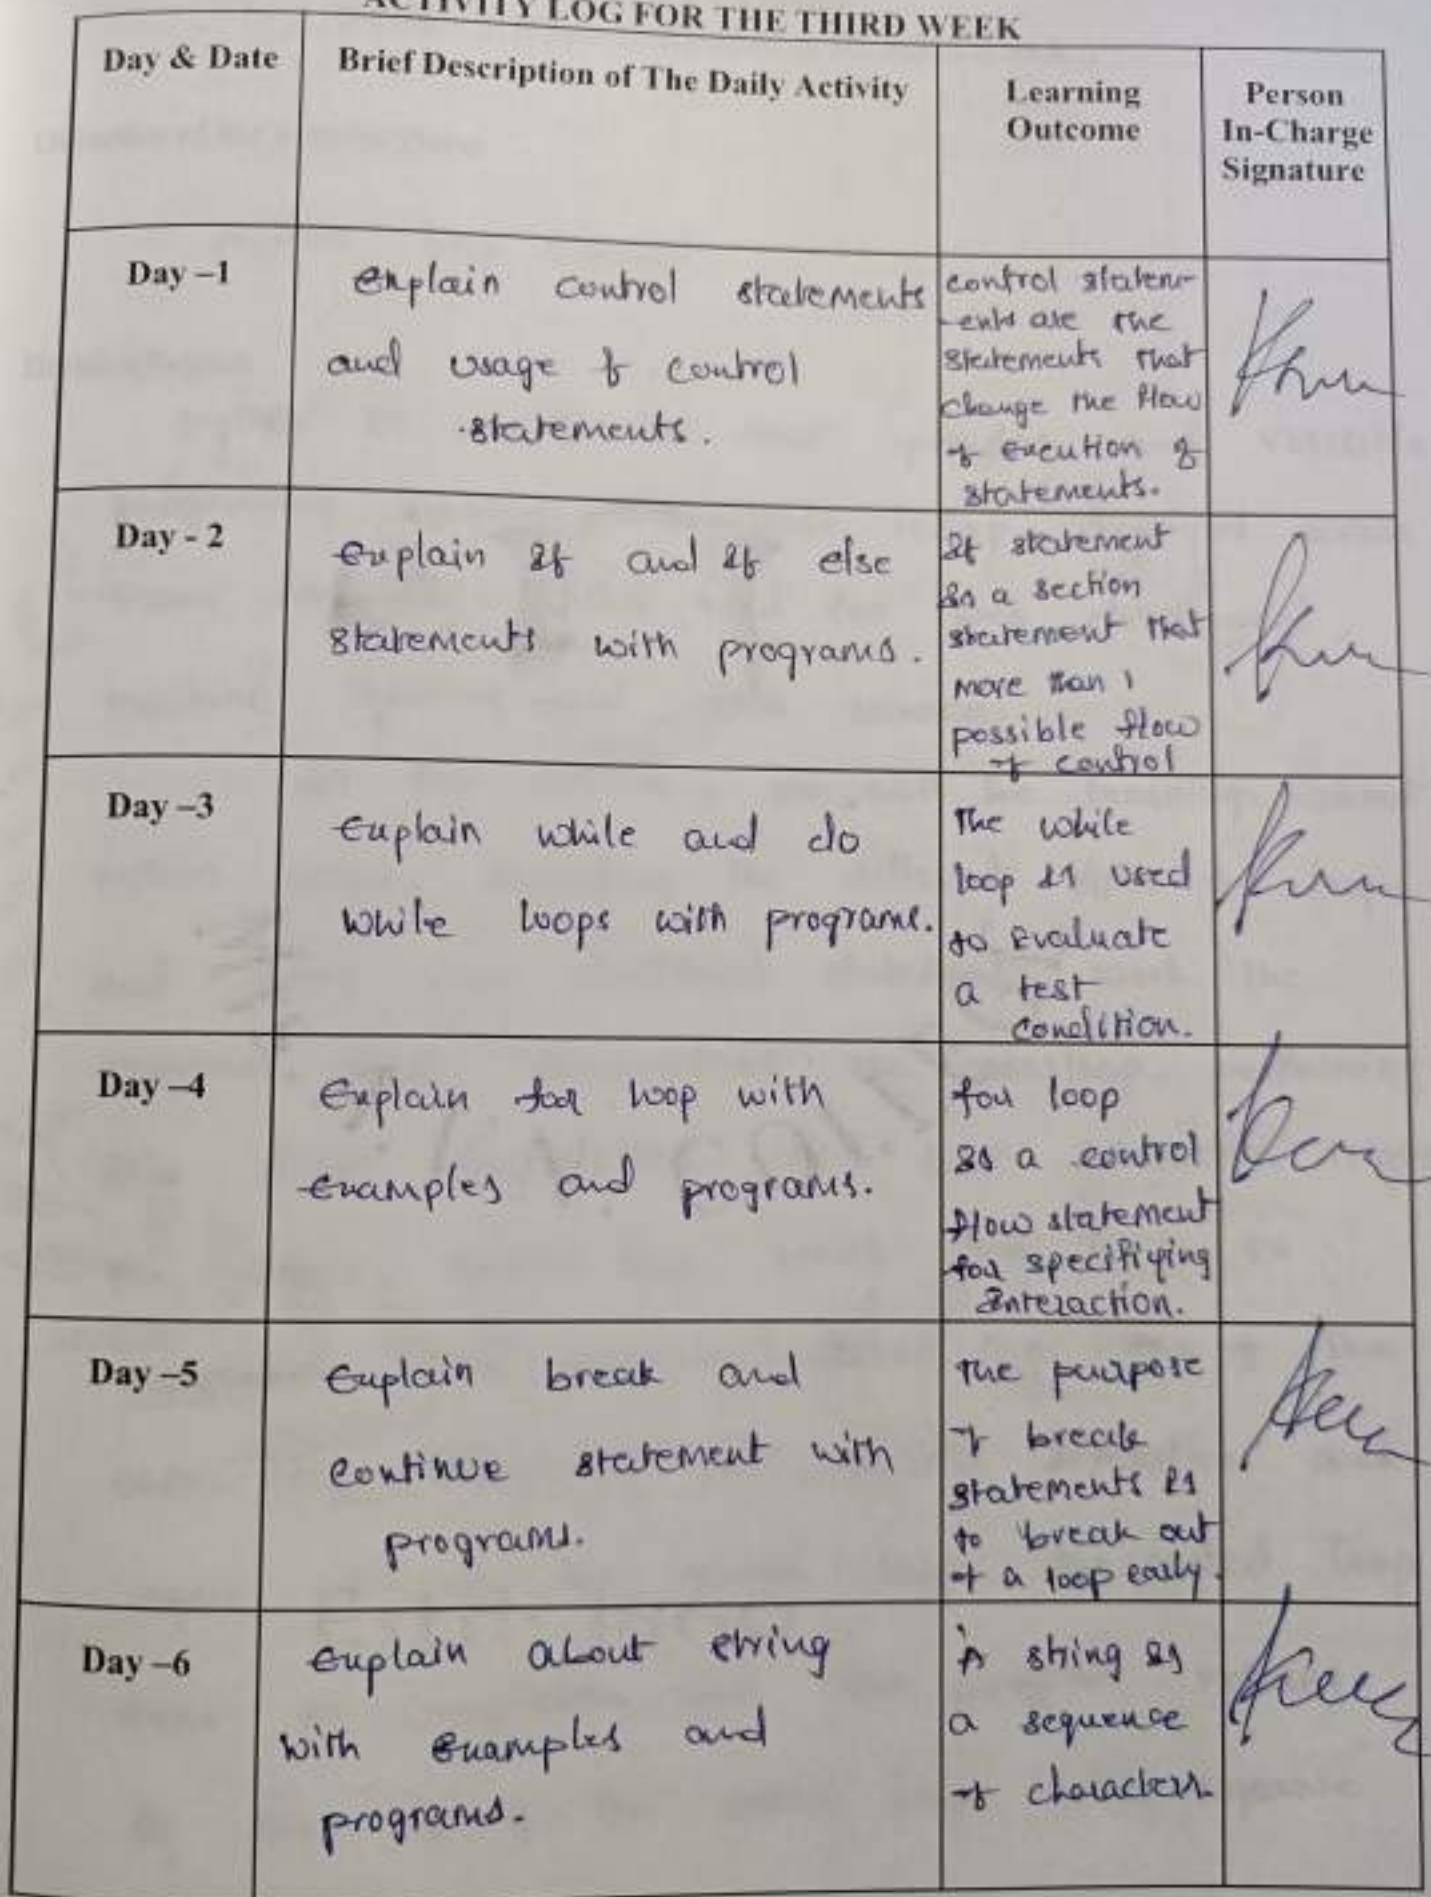 ACTIVITY LOG FOR THE THIRD WEEK
Day & Date
Brief Description of The Daily Activity
Learning
Outcome
Person
In-Charge
Signature
Day –1
Explain control statements
and usage of control
statements.
control statem-
-ents are the
statements that
change the flow
of execution of
statements.
Day - 2
Explain If and If else
statements with programs.
If statement
is a section
statement that
more than 1
possible flow
of control
Day –3
Explain while and do
while loops with programs.
The while
loop is used
to evaluate
a test
condition.
Day –4
Explain for loop with
examples and programs.
for loop
is a control
flow statement
for specifiying
Interaction.
Day –5
Explain break and
continue statement with
programs.
The purpose
of break
statements is
to break out
of a loop early.
Day –6
Explain about string
with examples and
programs.
A string is
a sequence
of characters.